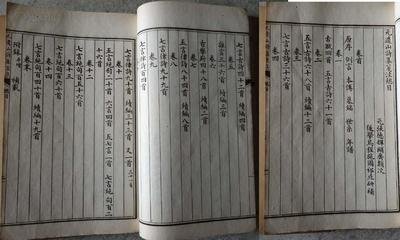 元遺山詩集箋注總目
元張德輝頤齋類次
後學烏程施國祁北研箋
卷首
原序 例言 本傳 墓銘 世系 年譜
卷一
五言古詩六十一首
卷二
續編三十二首
卷三
七言古詩三十六首
卷四
卷五
雜言 續編二首
卷六
古樂府四十八首 續編二首
卷七
五言律詩八十四首 續編八首
卷八
七言律詩九十九首
卷九
七言律詩百四首
卷十
七言律詩九十首 續編三十三首 又一首
卷十一
五言絕句二十首 六言四首 五七言一首 七言絕句百二
十六首
卷十二
七言絕句百六十首
卷十三
七言絕句百四十首 續編十九首
卷十四
卷末
附錄 補載